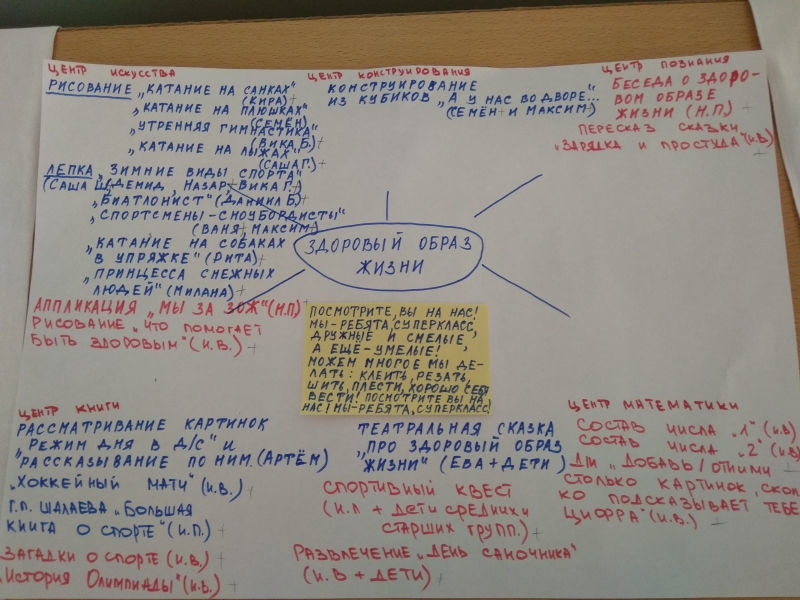 ЦЕНТР ИСКУССТВА
РИСОВАНИЕ „КАТАНИЕ НА САНКАХ"
(КИРА)+
„КАТАНИЕ НА ПЛЮШКАХ"
(СЕМЁН)
„УТРЕННЯЯ ГИМНАСТИКА"
(ВИКА Б.)+
„КАТАНИЕ НА ЛЫЖАХ"
(САША Г.)+
ЛЕПКА „ЗИМНИЕ ВИДЫ СПОРТА"
(САША Ш., ДЕМИД, НАЗАР, ВИКА Г.)
„БИАТЛОНИСТ" (ДАНИИЛ Б.)
„СПОРТСМЕНЫ-СНОУБОРДИСТЫ"
(ВАНЯ, МАКСИМ)
„КАТАНИЕ НА СОБАКАХ
В УПРЯЖКЕ" (РИТА)
„ПРИНЦЕССА СНЕЖНЫХ
ЛЮДЕЙ" (МИЛАНА)
АППЛИКАЦИЯ „МЫ ЗА ЗОЖ" (Н.П)
РИСОВАНИЕ „ЧТО ПОМОГАЕТ
БЫТЬ ЗДОРОВЫМ" (И.В.) +
ЦЕНТР КОНСТРУИРОВАНИЯ
КОНСТРУИРОВАНИЕ
ИЗ КУБИКОВ „А У НАС ВО ДВОРЕ..."
(СЕМЁН И МАКСИМ)+
ЦЕНТР ПОЗНАНИЯ
БЕСЕДА О ЗДОРО-
ВОМ ОБРАЗЕ
ЖИЗНИ (Н.П)+
ПЕРЕСКАЗ СКАЗКИ
„ЗАРЯДКА И ПРОСТУДА" (И.В.)
+
ЗДОРОВЫЙ ОБРАЗ
ЖИЗНИ
ПОСМОТРИТЕ, ВЫ НА НАС!
МЫ-РЕБЯТА, СУПЕРКЛАСС,
ДРУЖНЫЕ И СМЕЛЫЕ,
А ЕЩЁ-УМЕЛЫЕ!
МОЖЕМ МНОГОЕ МЫ ДЕ-
ЛАТЬ: КЛЕИТЬ, РЕЗАТЬ,
ШИТЬ, ПЛЕСТИ, ХОРОШО СЕБЯ
ВЕСТИ! ПОСМОТРИТЕ ВЫ НА
НАС! МЫ-РЕБЯТА, СУПЕРКЛАСС!
ЦЕНТР КНИГИ
РАССМАТРИВАНИЕ КАРТИНОК
„РЕЖИМ ДНЯ В Д/С" И
РАССКАЗЫВАНИЕ ПО НИМ. (АРТЁМ)
„ХОККЕЙНЫЙ МАТЧ" (И.В.) +
Г.П. ШАЛАЕВА „БОЛЬШАЯ
КНИГА О СПОРТЕ" (И.П.) +
ЗАГАДКИ О СПОРТЕ (И.В.) +
„ИСТОРИЯ ОЛИМПИАДЫ" (И.В.) +
ТЕАТРАЛЬНАЯ СКАЗКА
„ПРО ЗДОРОВЫЙ ОБРАЗ
ЖИЗНИ" (ЕВА + ДЕТИ)
СПОРТИВНЫЙ КВЕСТ
(И.П + ДЕТИ СРЕДНИХ И
СТАРШИХ ГРУПП.) +
РАЗВЛЕЧЕНИЕ „ДЕНЬ САНОЧНИКА"
(И.В + ДЕТИ) +
ЦЕНТР МАТЕМАТИКИ
СОСТАВ ЧИСЛА „1" (И.В)
СОСТАВ ЧИСЛА „2" (И.В)
Д/И „ДОБАВЬ/ОТНИМИ
СТОЛЬКО КАРТИНОК, СКОЛЬ
КО ПОДСКАЗЫВАЕТ ТЕБЕ
ЦИФРА" (И.В.) +